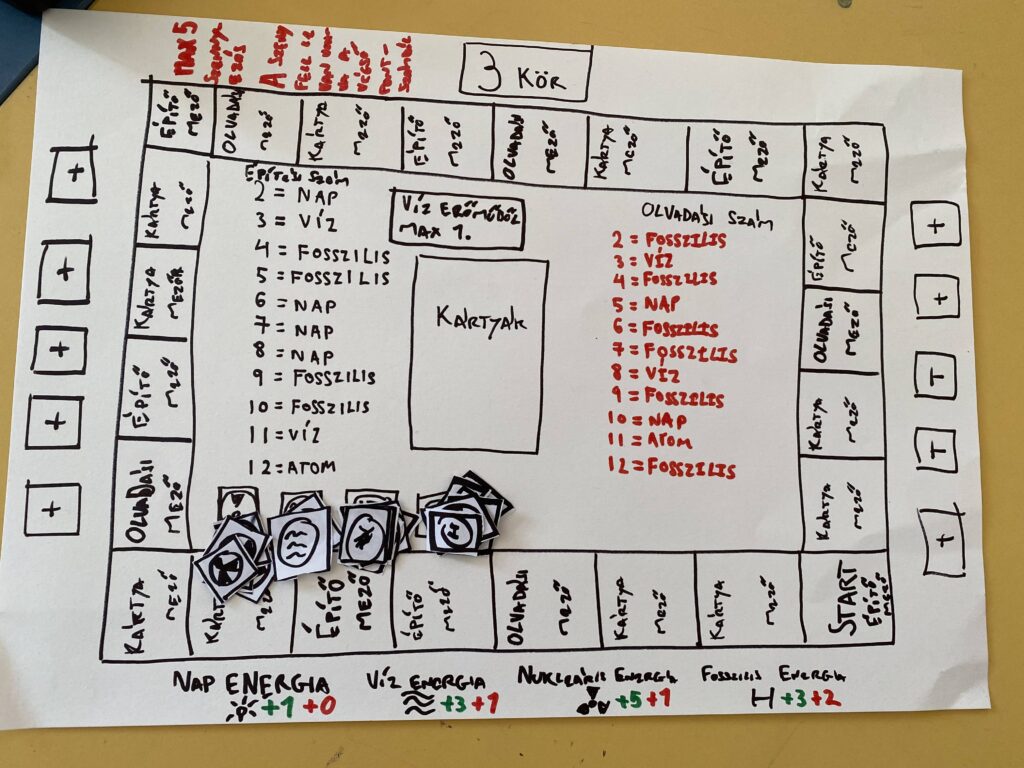 MAX 5
SZENNYE
EZÉS
A SZENY
FELL LE
VAN VON
VA A
VÉGSŐ
PONT-
SZÁMBÓL
3 KÖR
ÉPÍTŐ MEZŐ
OLVADÁSI MEZŐ
KÁRTYA MEZŐ
ÉPÍTŐ MEZŐ
OLVADÁSI MEZŐ
KÁRTYA MEZŐ
ÉPÍTŐ MEZŐ
KÁRTYA MEZŐ
KÁRTYA MEZŐ
KÁRTYA MEZŐ
ÉPÍTŐ MEZŐ
OLVADÁSI MEZŐ
ÉPÍTÉSI SZÁM
2 = NAP
3 = VÍZ
4 = FOSSZILIS
5 = FOSSZILIS
6 = NAP
7 = NAP
8 = NAP
9 = FOSSZILIS
10 = FOSSZILIS
11 = VÍZ
12 = ATOM
VÍZ ERŐMŰBŐL
MAX 1.
KÁRTYÁK
OLVADÁSI SZÁM
2 = FOSSZILIS
3 = VÍZ
4 = FOSSZILIS
5 = NAP
6 = FOSSZILIS
7 = FOSSZILIS
8 = VÍZ
9 = FOSSZILIS
10 = NAP
11 = ATOM
12 = FOSSZILIS
ÉPÍTŐ MEZŐ
OLVADÁSI MEZŐ
KÁRTYA MEZŐ
KÁRTYA MEZŐ
KÁRTYA MEZŐ
MEZŐ
ÉPÍTŐ MEZŐ
ÉPÍTŐ MEZŐ
OLVADÁSI MEZŐ
KÁRTYA MEZŐ
KÁRTYA MEZŐ
START ÉPÍTŐ MEZŐ
NAP ENERGIA
+1 +0
VÍZ ENERGIA
+3 +1
NUKLEÁRIS ENERGIA
+5 +1
FOSSZILIS ENERGIA
+3 +2